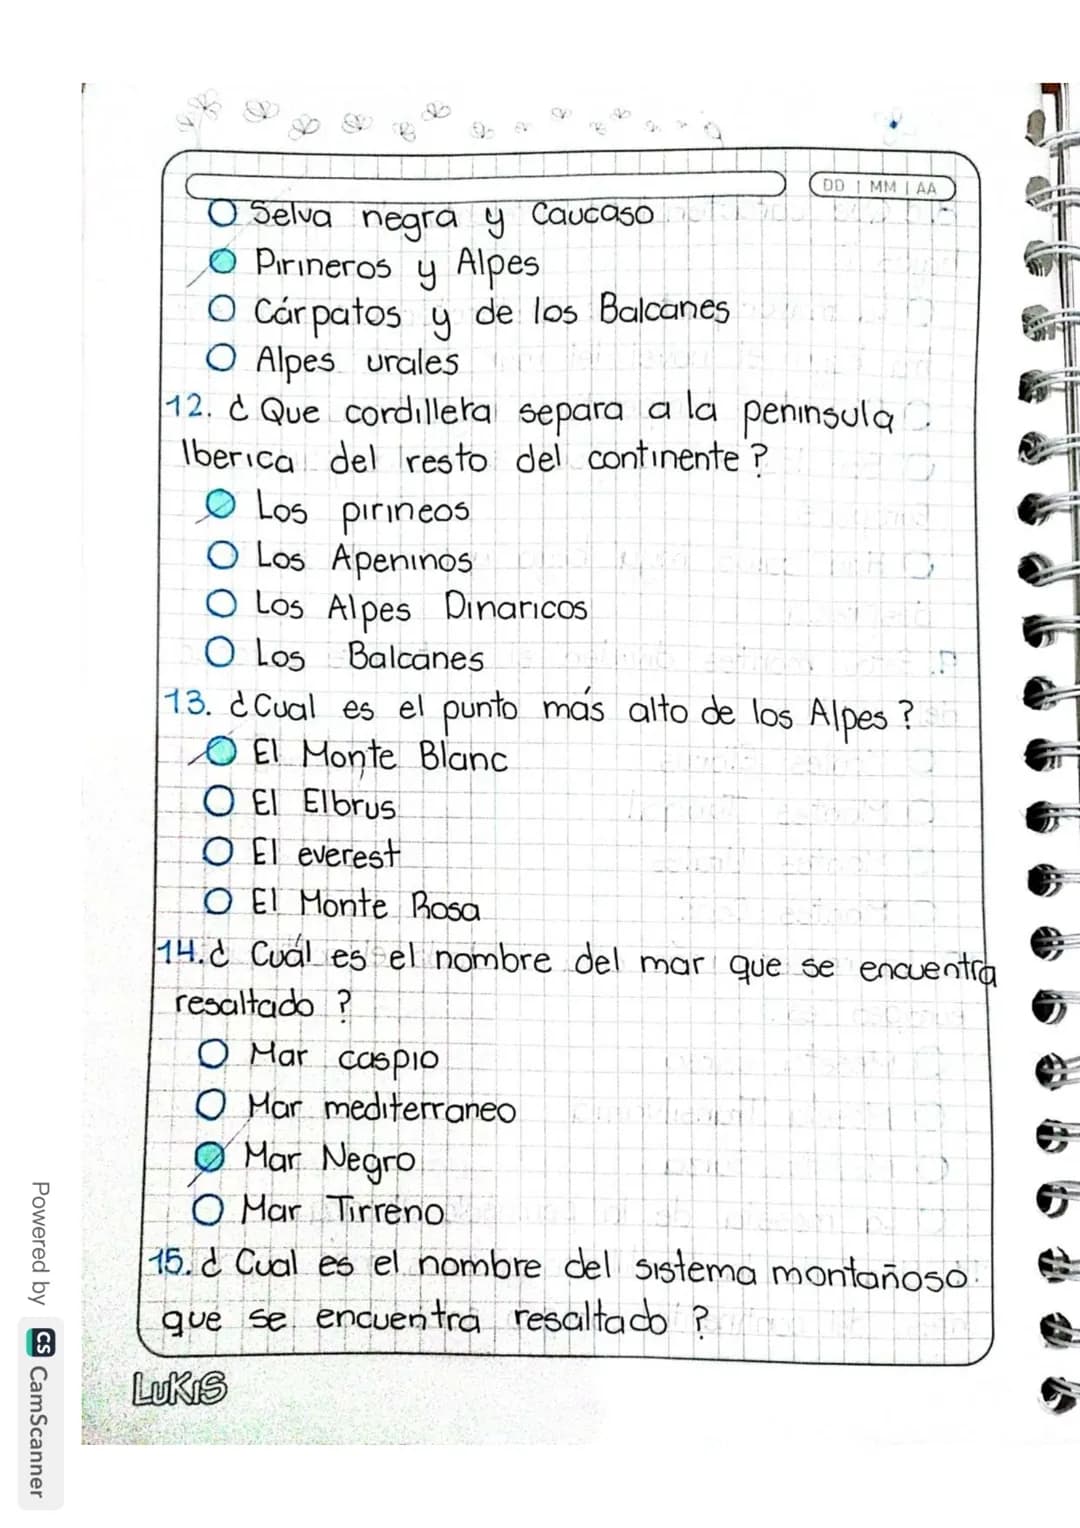 DD | MM | AA
Selva negra y Caucaso
Pirineros y Alpes
Cárpatos y de los Balcanes
Alpes urales
12. ¿ Que cordillera separa a la peninsula
Iberica del resto del continente ?
Los pirineos
Los Apeninos
Los Alpes Dinaricos
Los Balcanes
13. ¿Cual es el punto más alto de los Alpes ?
El Monte Blanc
El Elbrus
El everest
El Monte Rosa
14. ¿ Cuál es el nombre del mar que se encuentra
resaltado ?
Mar caspio
Mar mediterraneo
Mar Negro
Mar Tirreno
15. ¿ Cual es el nombre del sistema montañoso
que se encuentra resaltado ?
LUKIS
Powered by CS CamScanner